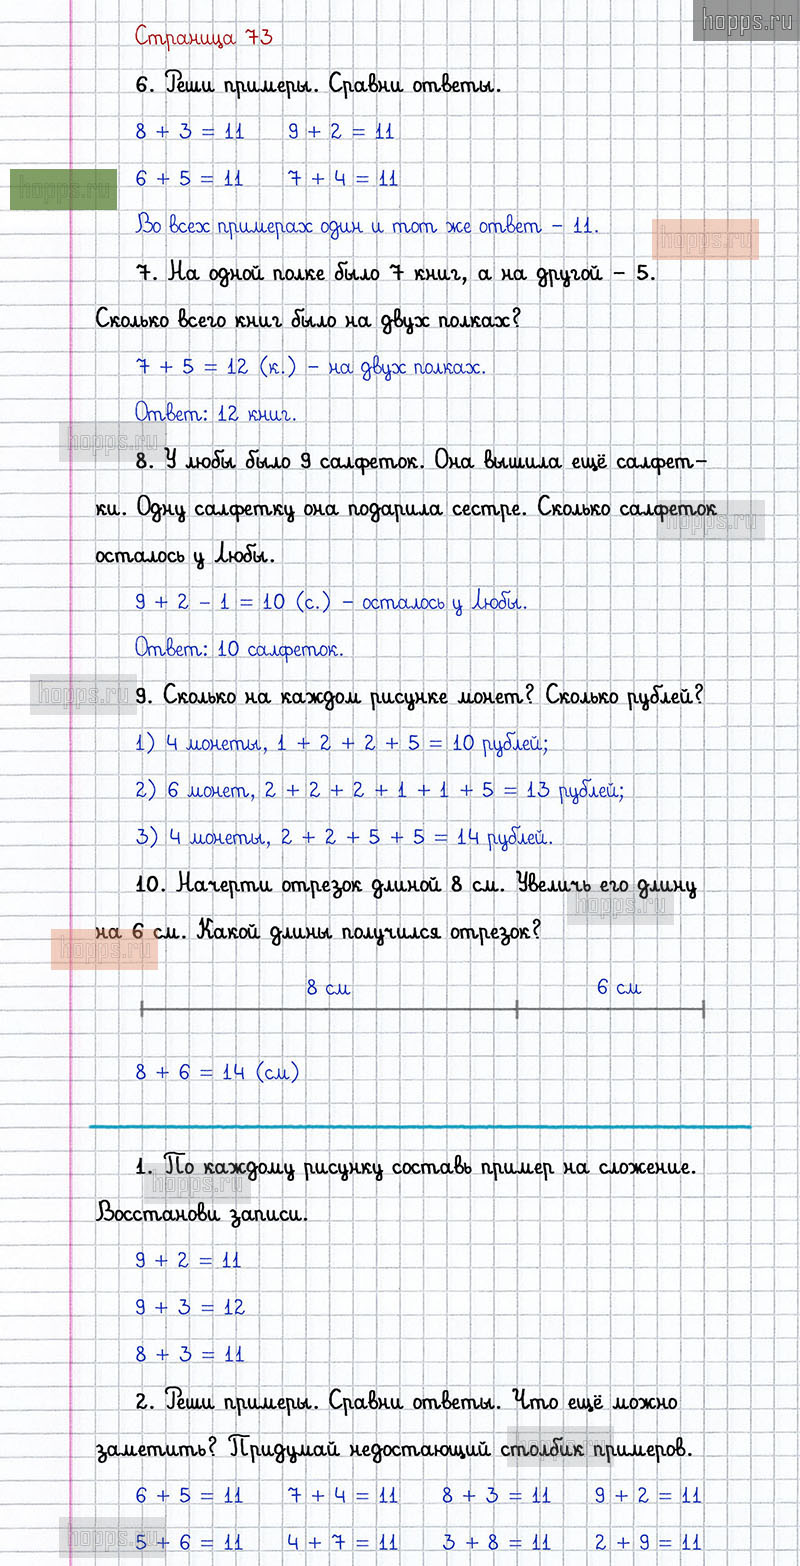 hopps.ru
Страница 73
6. Реши примеры. Сравни ответы.
8 + 3 = 11 9 + 2 = 11
6 + 5 = 11 7 + 4 = 11
hopps.ru
Во всех примерах один и тот же ответ – 11.
hopps.ru
7. На одной полке было 7 книг, а на другой – 5.
Сколько всего книг было на двух полках?
7 + 5 = 12 (к.) – на двух полках.
Ответ: 12 книг.
hopps.ru
8. У Любы было 9 салфеток. Она вышила ещё салфет-
ки. Одну салфетку она подарила сестре. Сколько салфеток
hopps.ru
осталось у Любы.
9 + 2 – 1 = 10 (с.) – осталось у Любы.
Ответ: 10 салфеток.
hopps.ru
9. Сколько на каждом рисунке монет? Сколько рублей?
1) 4 монеты, 1 + 2 + 2 + 5 = 10 рублей;
2) 6 монет, 2 + 2 + 2 + 1 + 1 + 5 = 13 рублей;
3) 4 монеты, 2 + 2 + 5 + 5 = 14 рублей.
10. Начерти отрезок длиной 8 см. Увеличь его длину
hopps.ru
на 6 см. Какой длины получился отрезок?
hopps.ru
8 см 6 см
8 + 6 = 14 (см)
1. По каждому рисунку составь пример на сложение.
hopps.ru
Восстанови записи.
9 + 2 = 11
9 + 3 = 12
8 + 3 = 11
2. Реши примеры. Сравни ответы. Что ещё можно
заметить? Придумай недостающий столбик примеров.
hopps.ru
6 + 5 = 11 7 + 4 = 11 8 + 3 = 11 9 + 2 = 11
5 + 6 = 11 4 + 7 = 11 3 + 8 = 11 2 + 9 = 11
hopps.ru